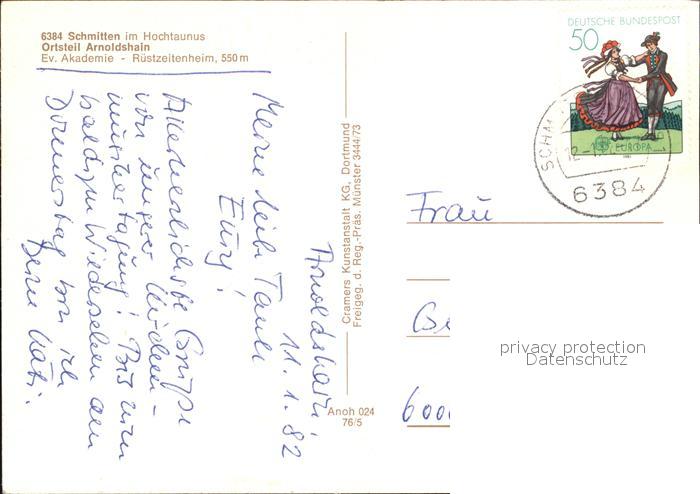 6384 Schmitten im Hochtaunus
Ortsteil Arnoldshain
Ev. Akademie - Rüstzeitenheim, 550 m
DEUTSCHE BUNDESPOST
50
EUROPA
SCHM
12.-1
6384
Arnoldshain,
11.1.82
Meine liebe Tante
Allerherzlichste Grüße
von unserer Kirchen-
musikertagung! Bis zum
baldigen Wiedersehen am
Donnerstag bin ich
Deine Käti.
Cramers Kunstanstalt KG, Dortmund
Freigeg. d. Reg.-Präs. Münster 3444/73
Anoh 024
76/5
Frau
600
privacy protection
Datenschutz